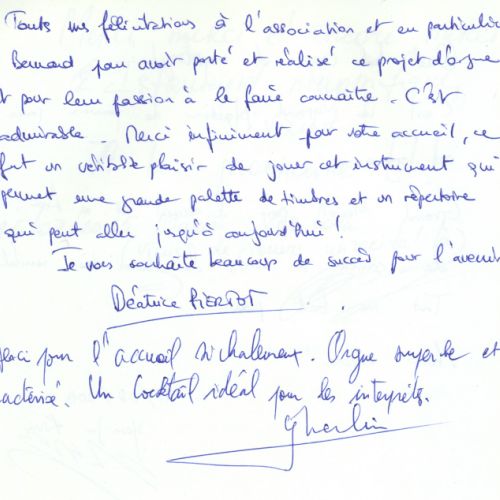 Toutes mes félicitations à l'association et en particulier
Bernard pour avoir porté et réalisé ce projet d'orgue
t pour leur passion à le faire connaître. C'est
admirable. Merci infiniment pour votre accueil, ce
fut un véritable plaisir de jouer cet instrument qui
permet une grande palette de timbres et un répertoire
qui peut aller jusqu'à aujourd'hui!
Je vous souhaite beaucoup de succès pour l'avenir
Béatrice PIERTOT.
pour l'accueil si chaleureux. Orgue superbe et
ractérisé. Un Cocktail idéal pour les interprètes.